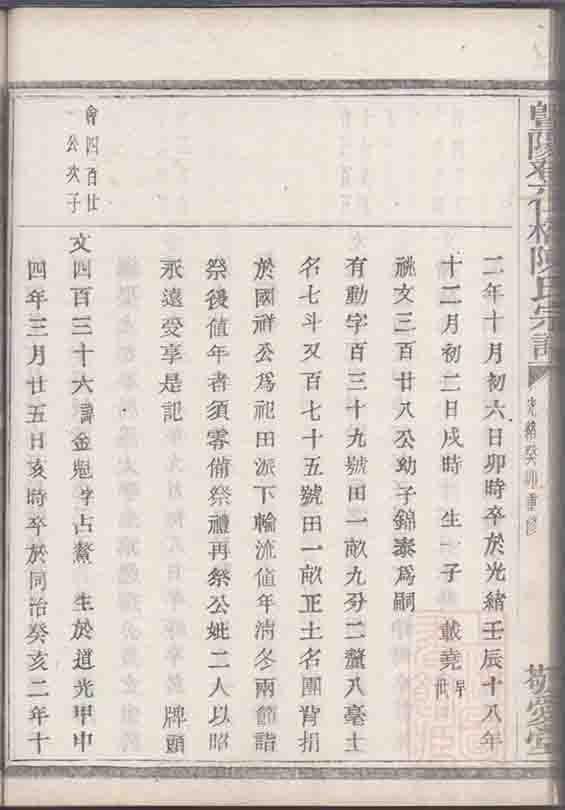 暨陽春石格陳氏宗譜
光緒癸卯重修
敬愛堂
二年十月初六日卯時卒於光緒壬辰十八年
十二月初二日戌時 生一子 載堯早世
祧文三百廿八公幼子錦泰為嗣
有動字百三十九號田一畝九分二釐八毫土
名七斗又百七十五號田一畝正土名團背捐
於國祥公為祀田派下輪流值年清冬兩節詣
祭後值年者須零備祭禮再祭公妣二人以昭
永遠受享是記 牌頭
會四百廿一公次子
文四百三十六諱金魁字占鰲 生於道光甲申
四年三月廿五日亥時卒於同治癸亥二年十